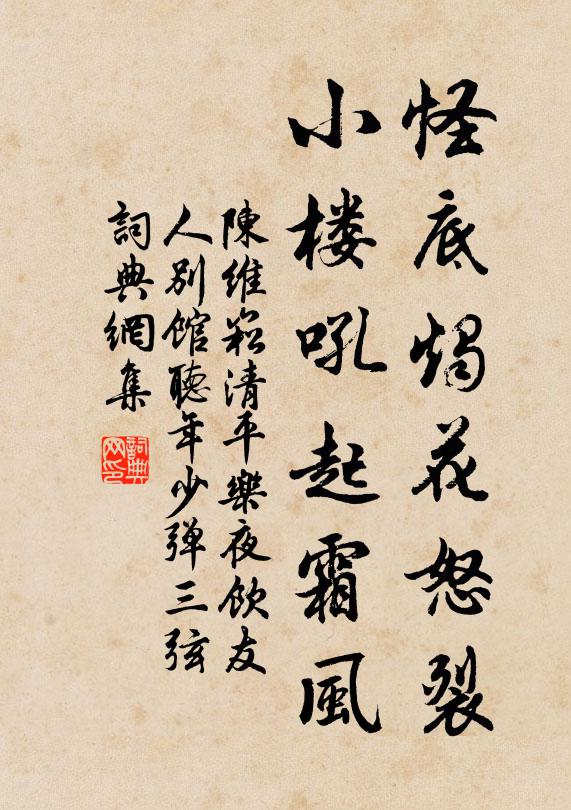 怪底燭花怒裂
小楼吼起霜風
陳維崧清平樂夜飲友
人別館聽年少弹三弦
詞典網集
詞典
网印